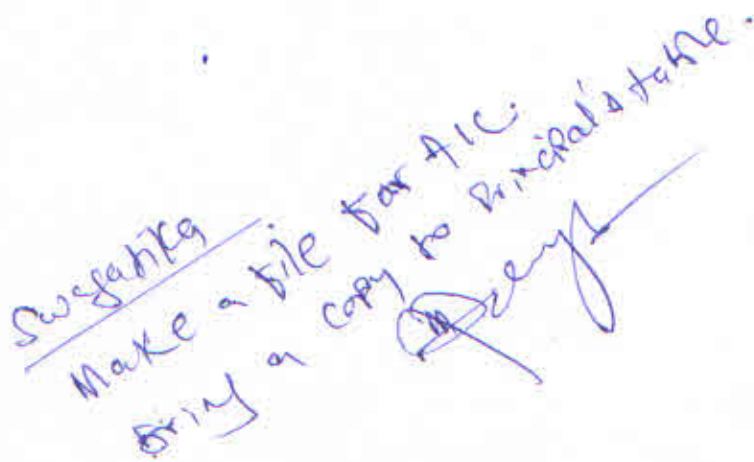 Swagatika
Make a file for A/C.
Bring a copy to Principal's table.